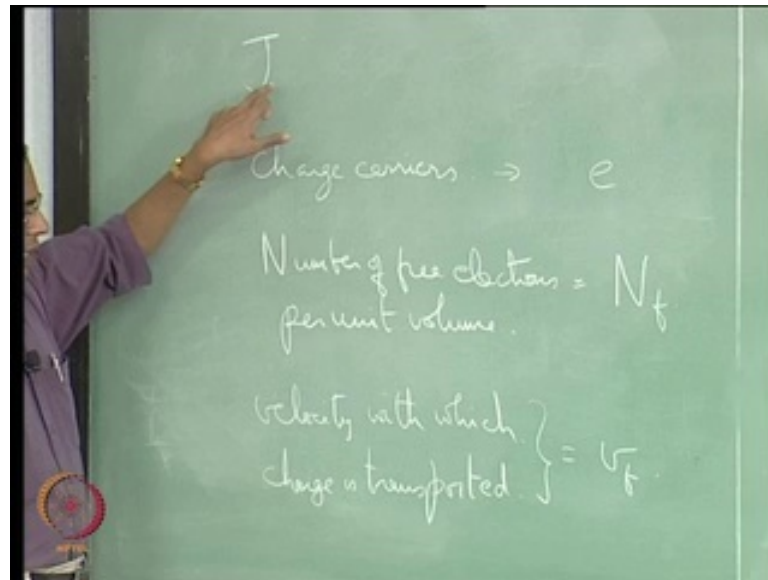 J
Charge carriers → e
Number of free electrons = N_f
per unit volume.
velocity with which
charge is transported. } = v_f.
NPTEL